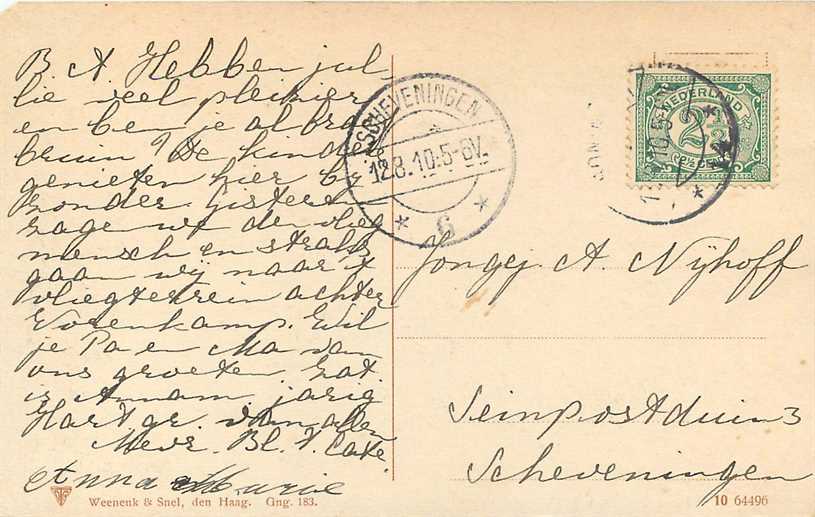 B. A. Hebben jul-
lie veel pleizier
en ben je al bra
bruin? De kinder
genieten hier bij
zonder. Gisteren
zage we den vlieg
mensch en straks
gaan wij naar 't
vliegterrein achter
Vosenkamp. Wil
je Pa en Ma van
ons groeten. Zat.
is Annam. jarig
Hart gr. van allen
Mevr. Bl. t. Cate.
Anna Marie
SCHEVENINGEN
12.8.10.5-6V.
* 5 *
NEDERLAND
2½
Jongej. A. Nijhoff
Seinpostduin 3
Scheveningen
Weenenk & Snel, den Haag. Gng. 183.
10 64496